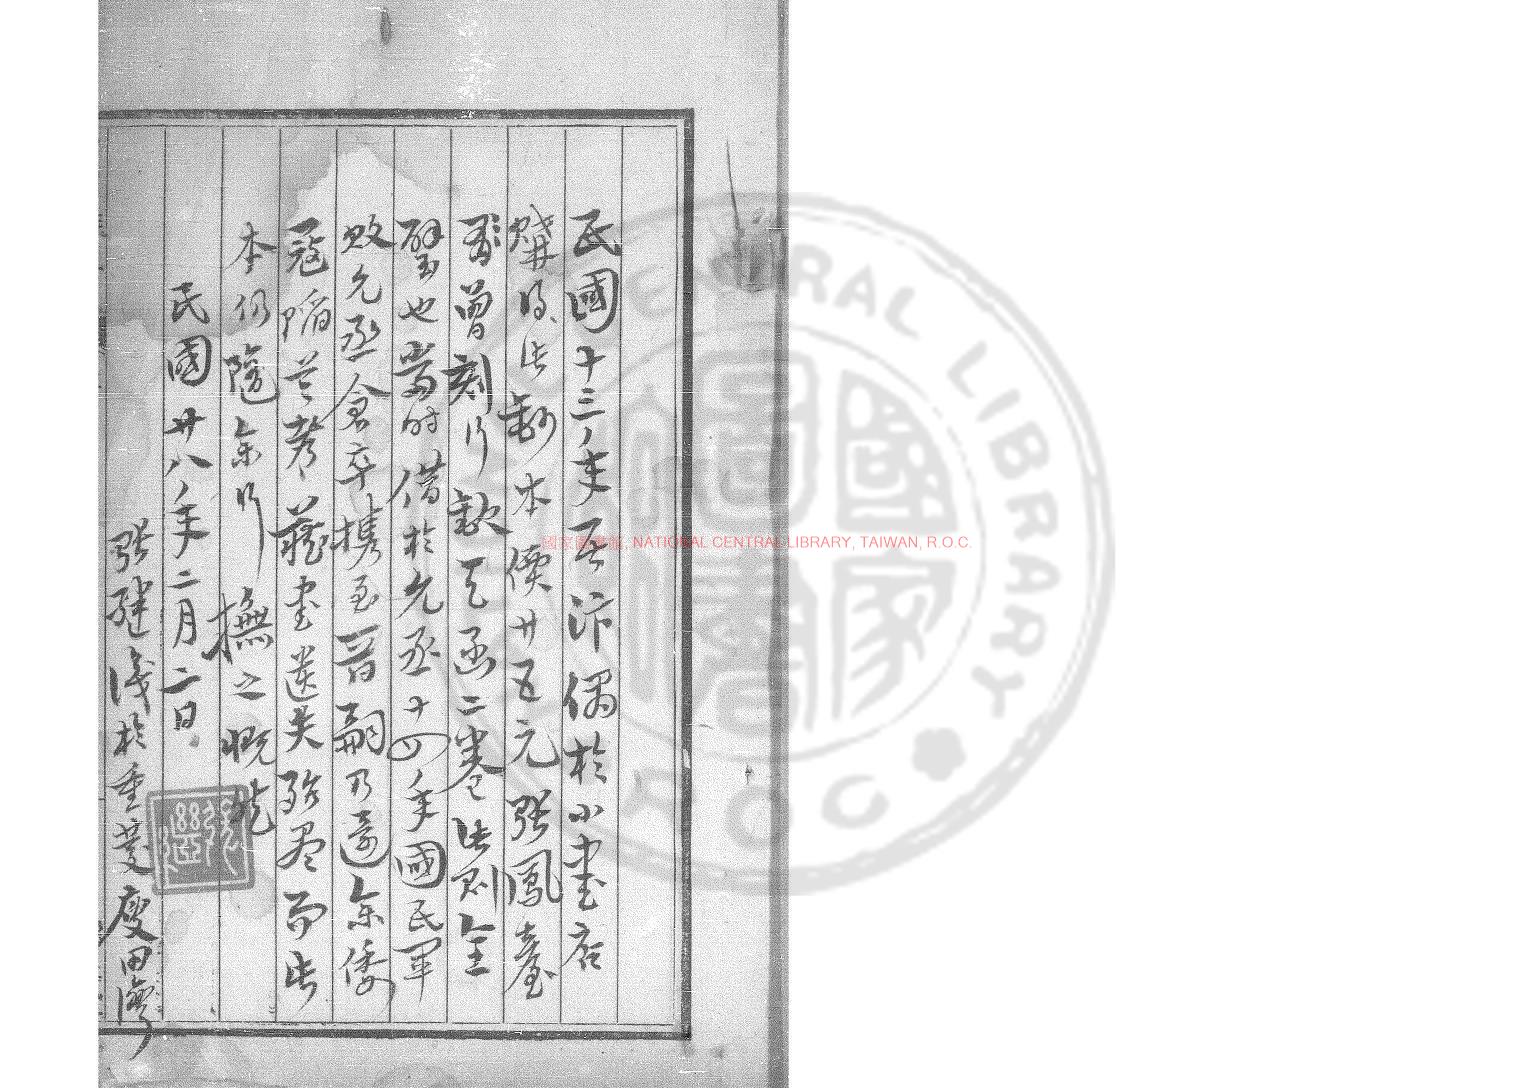 民國十三年居汴偶於小書店
購得此鈔本價廿五元張鳳臺
曾刻行欵天函二卷此則全
璧也當時借於允丞十四年國民軍
敗允丞倉卒携至晉嗣乃還余倭
寇陷芒考藏書遺失殆盡而此
本仍隨余行撫之慨然
民國廿八年二月二日
張繼淺於重慶廋田灣
國家圖書館, NATIONAL CENTRAL LIBRARY, TAIWAN, R.O.C.
CENTRAL LIBRARY
R.O.C
國家圖書